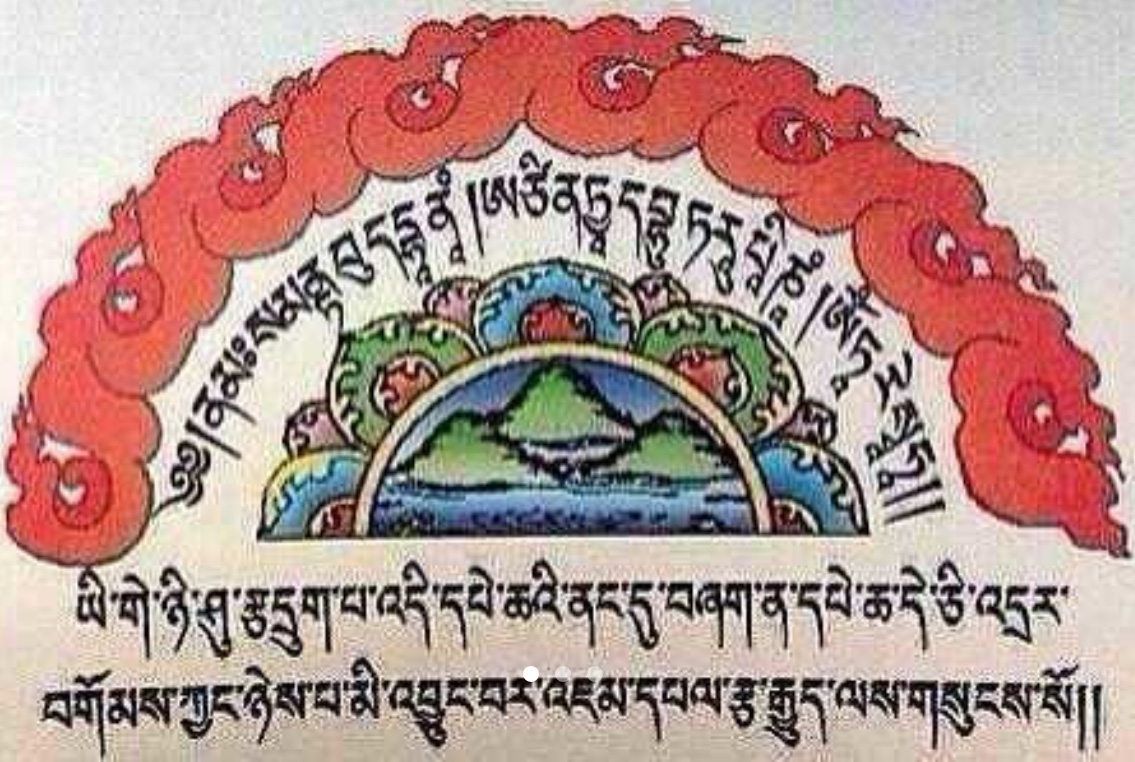 ༄༅།ནམཿསམནྟབུདྡྷཱནཱཾ།ཨཙིནྟྱདབྷུཏརཱུཔིཎཱཾ།ཨོཾཧཱུ་རེསྭཱཧཱ།།
ཡི་གེ་ཉི་ཤུ་རྩ་དྲུག་པ་འདི་དཔེ་ཆའི་ནང་དུ་བཞག་ན་དཔེ་ཆ་དེ་ཅི་འདྲར་
བགོམས་ཀྱང་ཉེས་པ་མི་འབྱུང་བར་འཇམ་དཔལ་རྩ་རྒྱུད་ལས་གསུངས་སོ།།